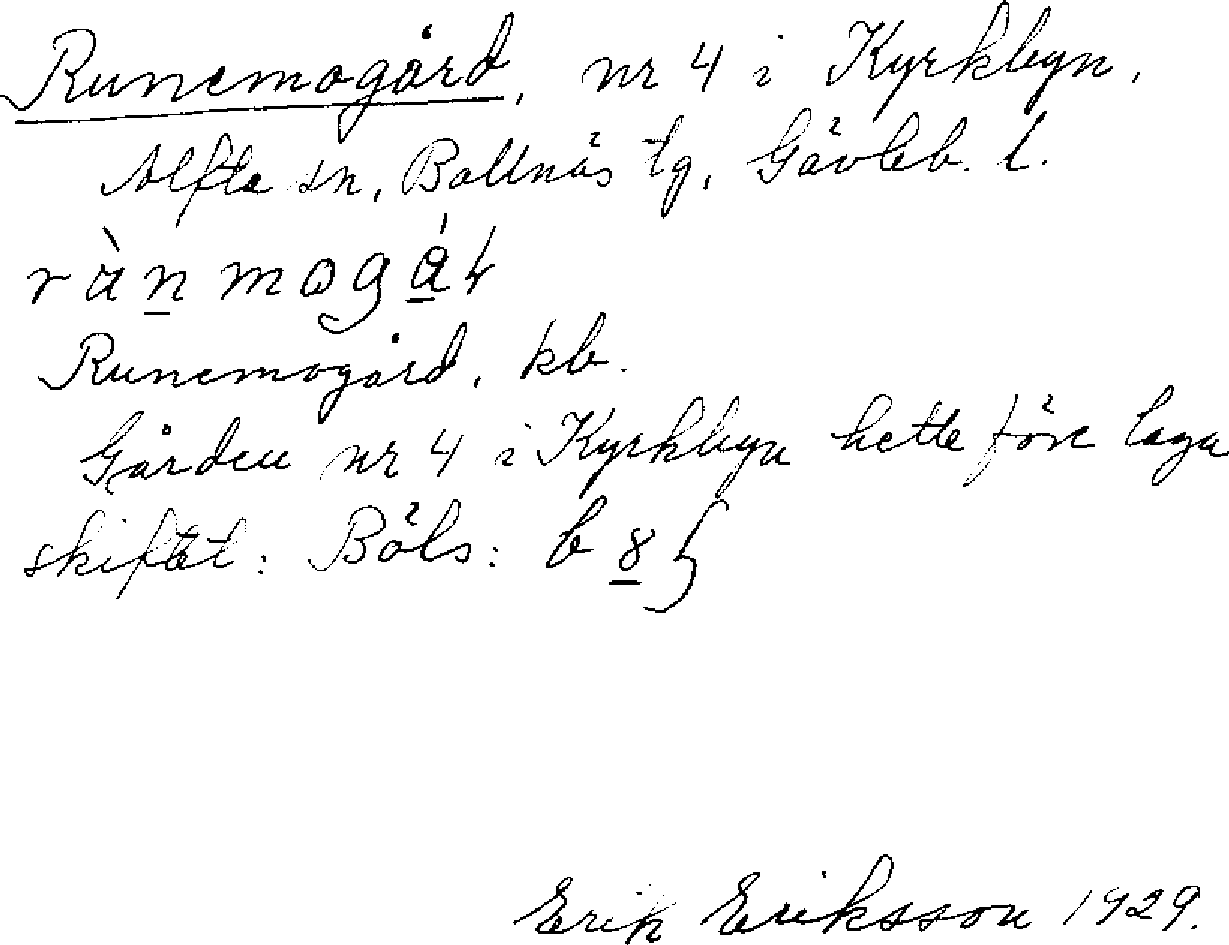 Runemogård, nr 4 i Kyrkbyn.
Alfta sn, Bollnäs tg, Gävleb. l.
rànmogáɽ
Runemogård, kb.
Gården nr 4 i Kyrkbyn hette före laga
skiftet: Böls: b
Erik Eriksson 1929.